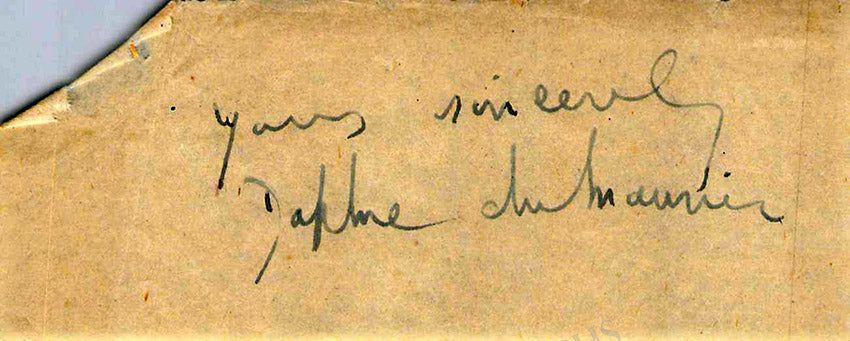 Yours sincerely
Daphne du Maurier